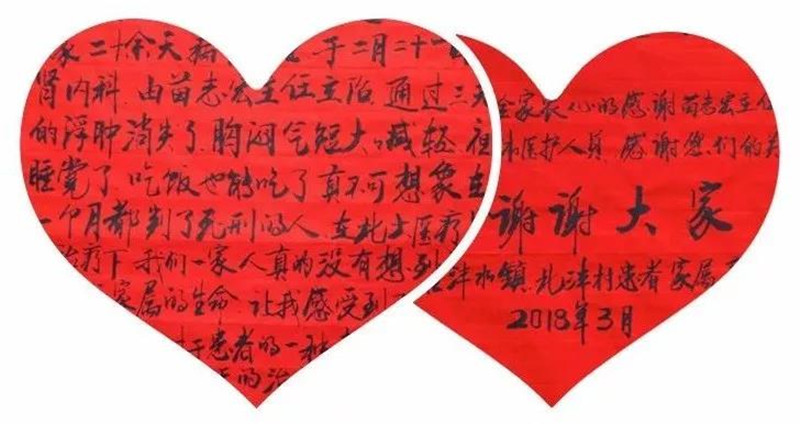 家二十余天
于二月二十一
肾内科.由苗志宏主任主治.通过三天
的浮肿消失了.胸闷气短大大减轻.
睡觉了.吃饭也能吃了真不可想象在
一个月都判了死刑的人.在北大医疗
治疗下.我们一家人真的没有想到
家属的生命.让我感受到
对于患者的一种
的治
全家衷心的感谢苗志宏主任
医护人员.感谢您们的关
谢谢大家
沣水镇.北沣村患者家属
2018年3月